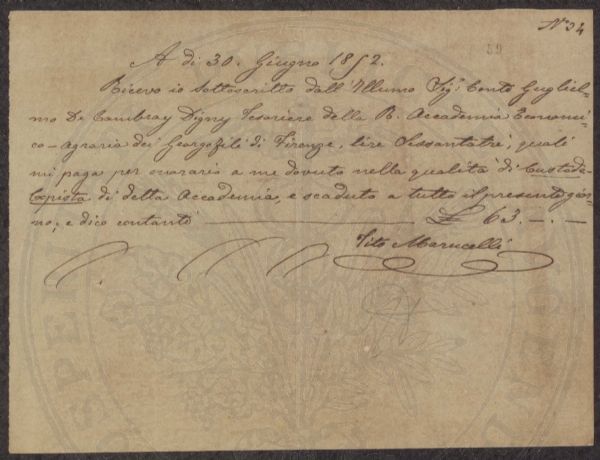 N° 34
59
A dì 30. Giugno 1852.
Ricevo io Sottoscritto dall'Illumo Sigr Conte Gugliel=
mo De Cambray Digny Tesoriere della R. Accademia Economi=
co-Agraria dei Georgofili di Firenze, lire Sessantatrè, quali
mi paga per onorario a me dovuto nella qualità di Custode
Copista di detta Accademia, e scaduto a tutto il presente gior=
no; e dico contanti £ 63. -. -
Tito Marucelli
PROSPERI